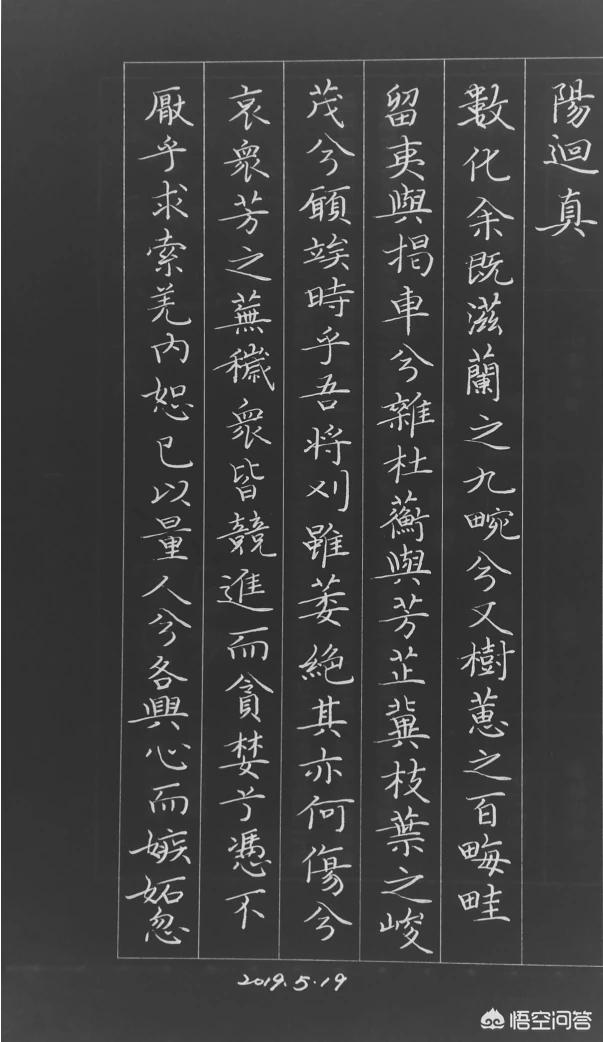 陽迴真
數化余既滋蘭之九畹兮又樹蕙之百畮畦
留夷與揭車兮雜杜蘅與芳芷冀枝葉之峻
茂兮願竢時乎吾将刈雖萎絕其亦何傷兮
哀衆芳之蕪穢衆皆競進而貪婪兮憑不
厭乎求索羌内恕己以量人兮各興心而嫉妬忽
2019.5.19
悟空问答